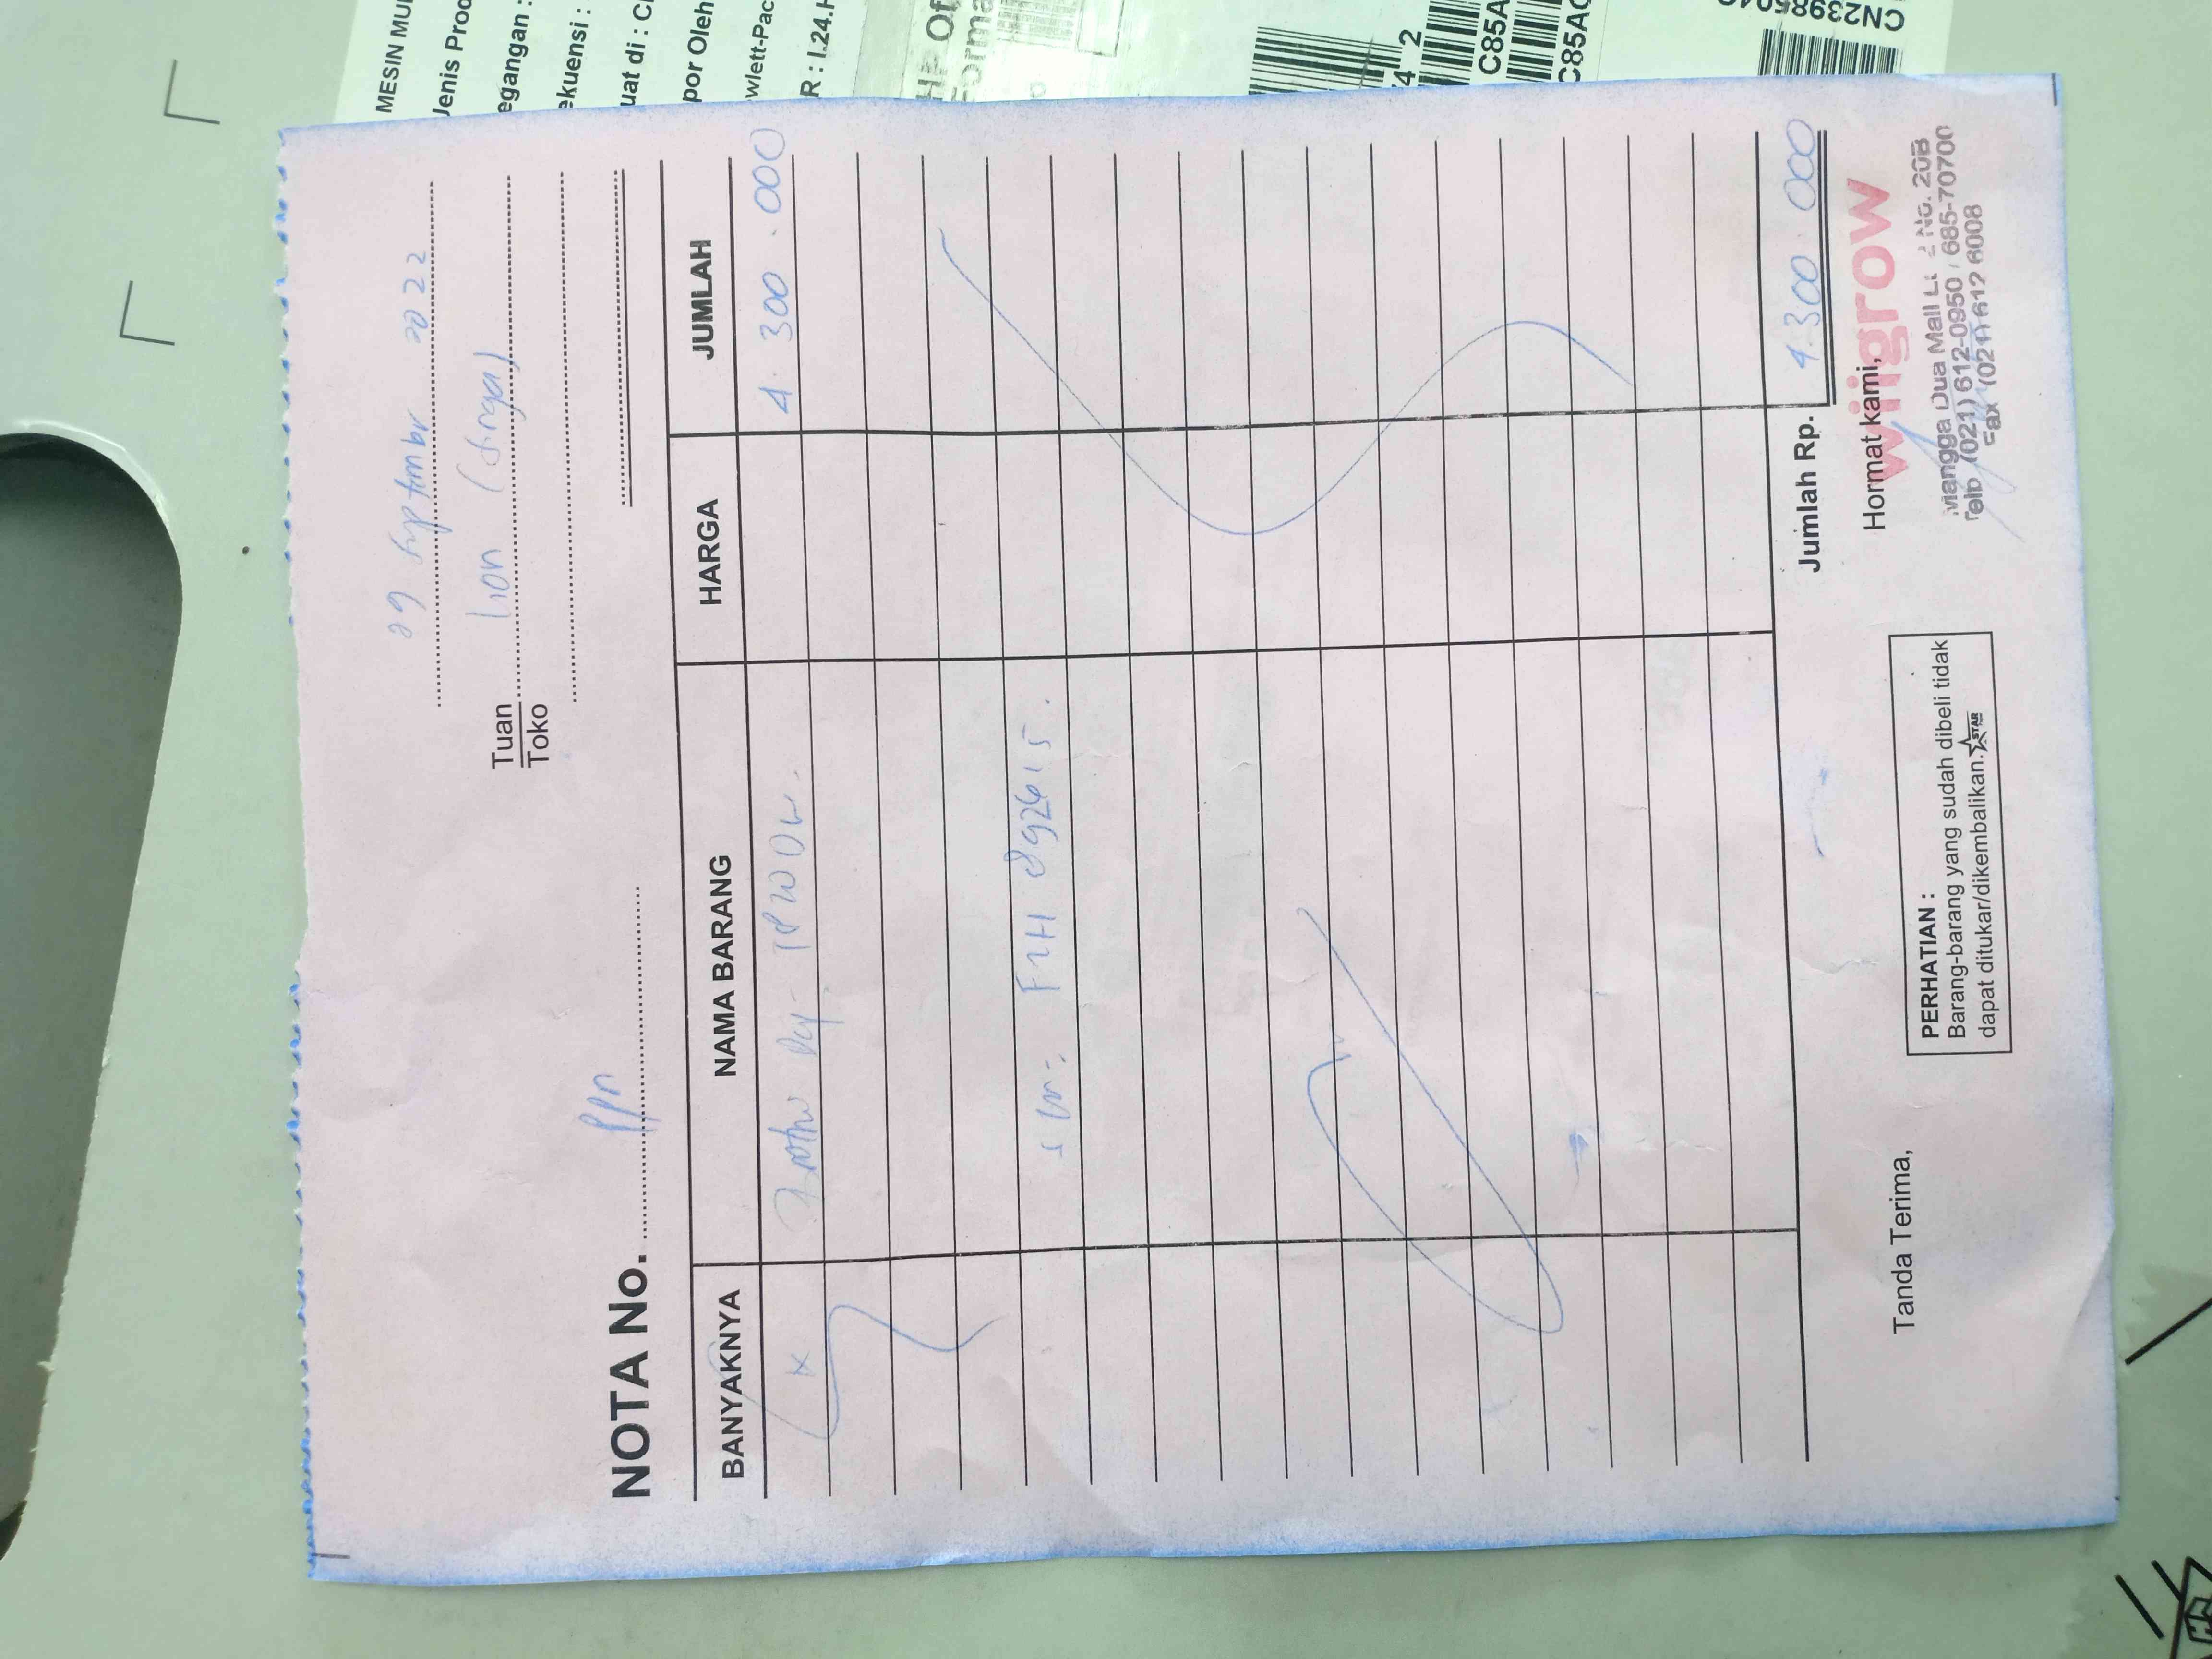 MESIN MU
Jenis Prod
egangan :
ekuensi :
uat di : C
por Oleh
wlett-Pac
R : I.24.H
HP Of
Forma
4 2
C85A
C85AC
CN239
29 September 2022
Tuan
Toko
Lion (Singa)
NOTA No. ppn
BANYAKNYA NAMA BARANG HARGA JUMLAH
1x 4.300.000
SN: FZH 892615.
Jumlah Rp. 4.300.000
Tanda Terima,
PERHATIAN :
Barang-barang yang sudah dibeli tidak
dapat ditukar/dikembalikan.
STAR
Hormat kami,
wiigrow
Mangga Dua Mall Lt 2 No. 20B
Telp (021) 612-0950 / 685-70700
Fax (021) 612 6008